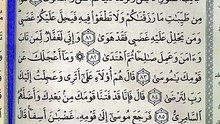 مِن طَيِّبَٰتِ مَا رَزَقْنَٰكُمْ وَلَا تَطْغَوْا۟ فِيهِ فَيَحِلَّ عَلَيْكُمْ غَضَبِى
وَمَن يَحْلِلْ عَلَيْهِ غَضَبِى فَقَدْ هَوَىٰ ٨١ وَإِنِّى لَغَفَّارٌ لِّمَن تَابَ
وَءَامَنَ وَعَمِلَ صَٰلِحًا ثُمَّ ٱهْتَدَىٰ ٨٢ وَمَآ أَعْجَلَكَ عَن
قَوْمِكَ يَٰمُوسَىٰ ٨٣ قَالَ هُمْ أُو۟لَآءِ عَلَىٰٓ أَثَرِى وَعَجِلْتُ إِلَيْكَ
رَبِّ لِتَرْضَىٰ ٨٤ قَالَ فَإِنَّا قَدْ فَتَنَّا قَوْمَكَ مِنۢ بَعْدِكَ وَأَضَلَّهُمُ
ٱلسَّامِرِىُّ ٨٥ فَرَجَعَ مُوسَىٰٓ إِلَىٰ قَوْمِهِۦ غَضْبَٰنَ أَسِفًا قَالَ